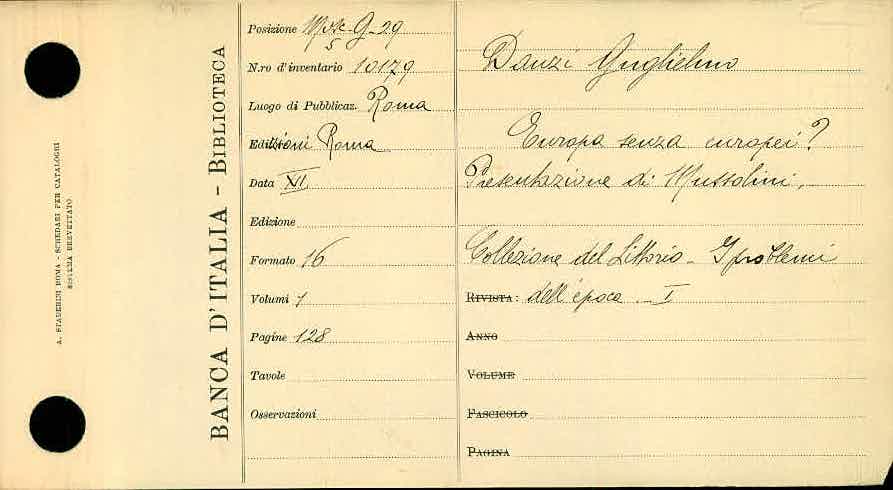 BANCA D'ITALIA - BIBLIOTECA
A. STADERINI ROMA - SCHEDARI PER CATALOGHI
SISTEMA BREVETTATO
Posizione G-29
5
N.ro d'inventario 10179
Luogo di Pubblicaz. Roma
Edizioni Roma
Data XII
Edizione
Formato 16
Volumi 1
Pagine 128
Tavole
Osservazioni
Danzi Guglielmo
Europa senza europei?
Presentazione di Mussolini.
Collezione del Littorio - I problemi
RIVISTA: dell'epoca - I
ANNO
VOLUME
FASCICOLO
PAGINA